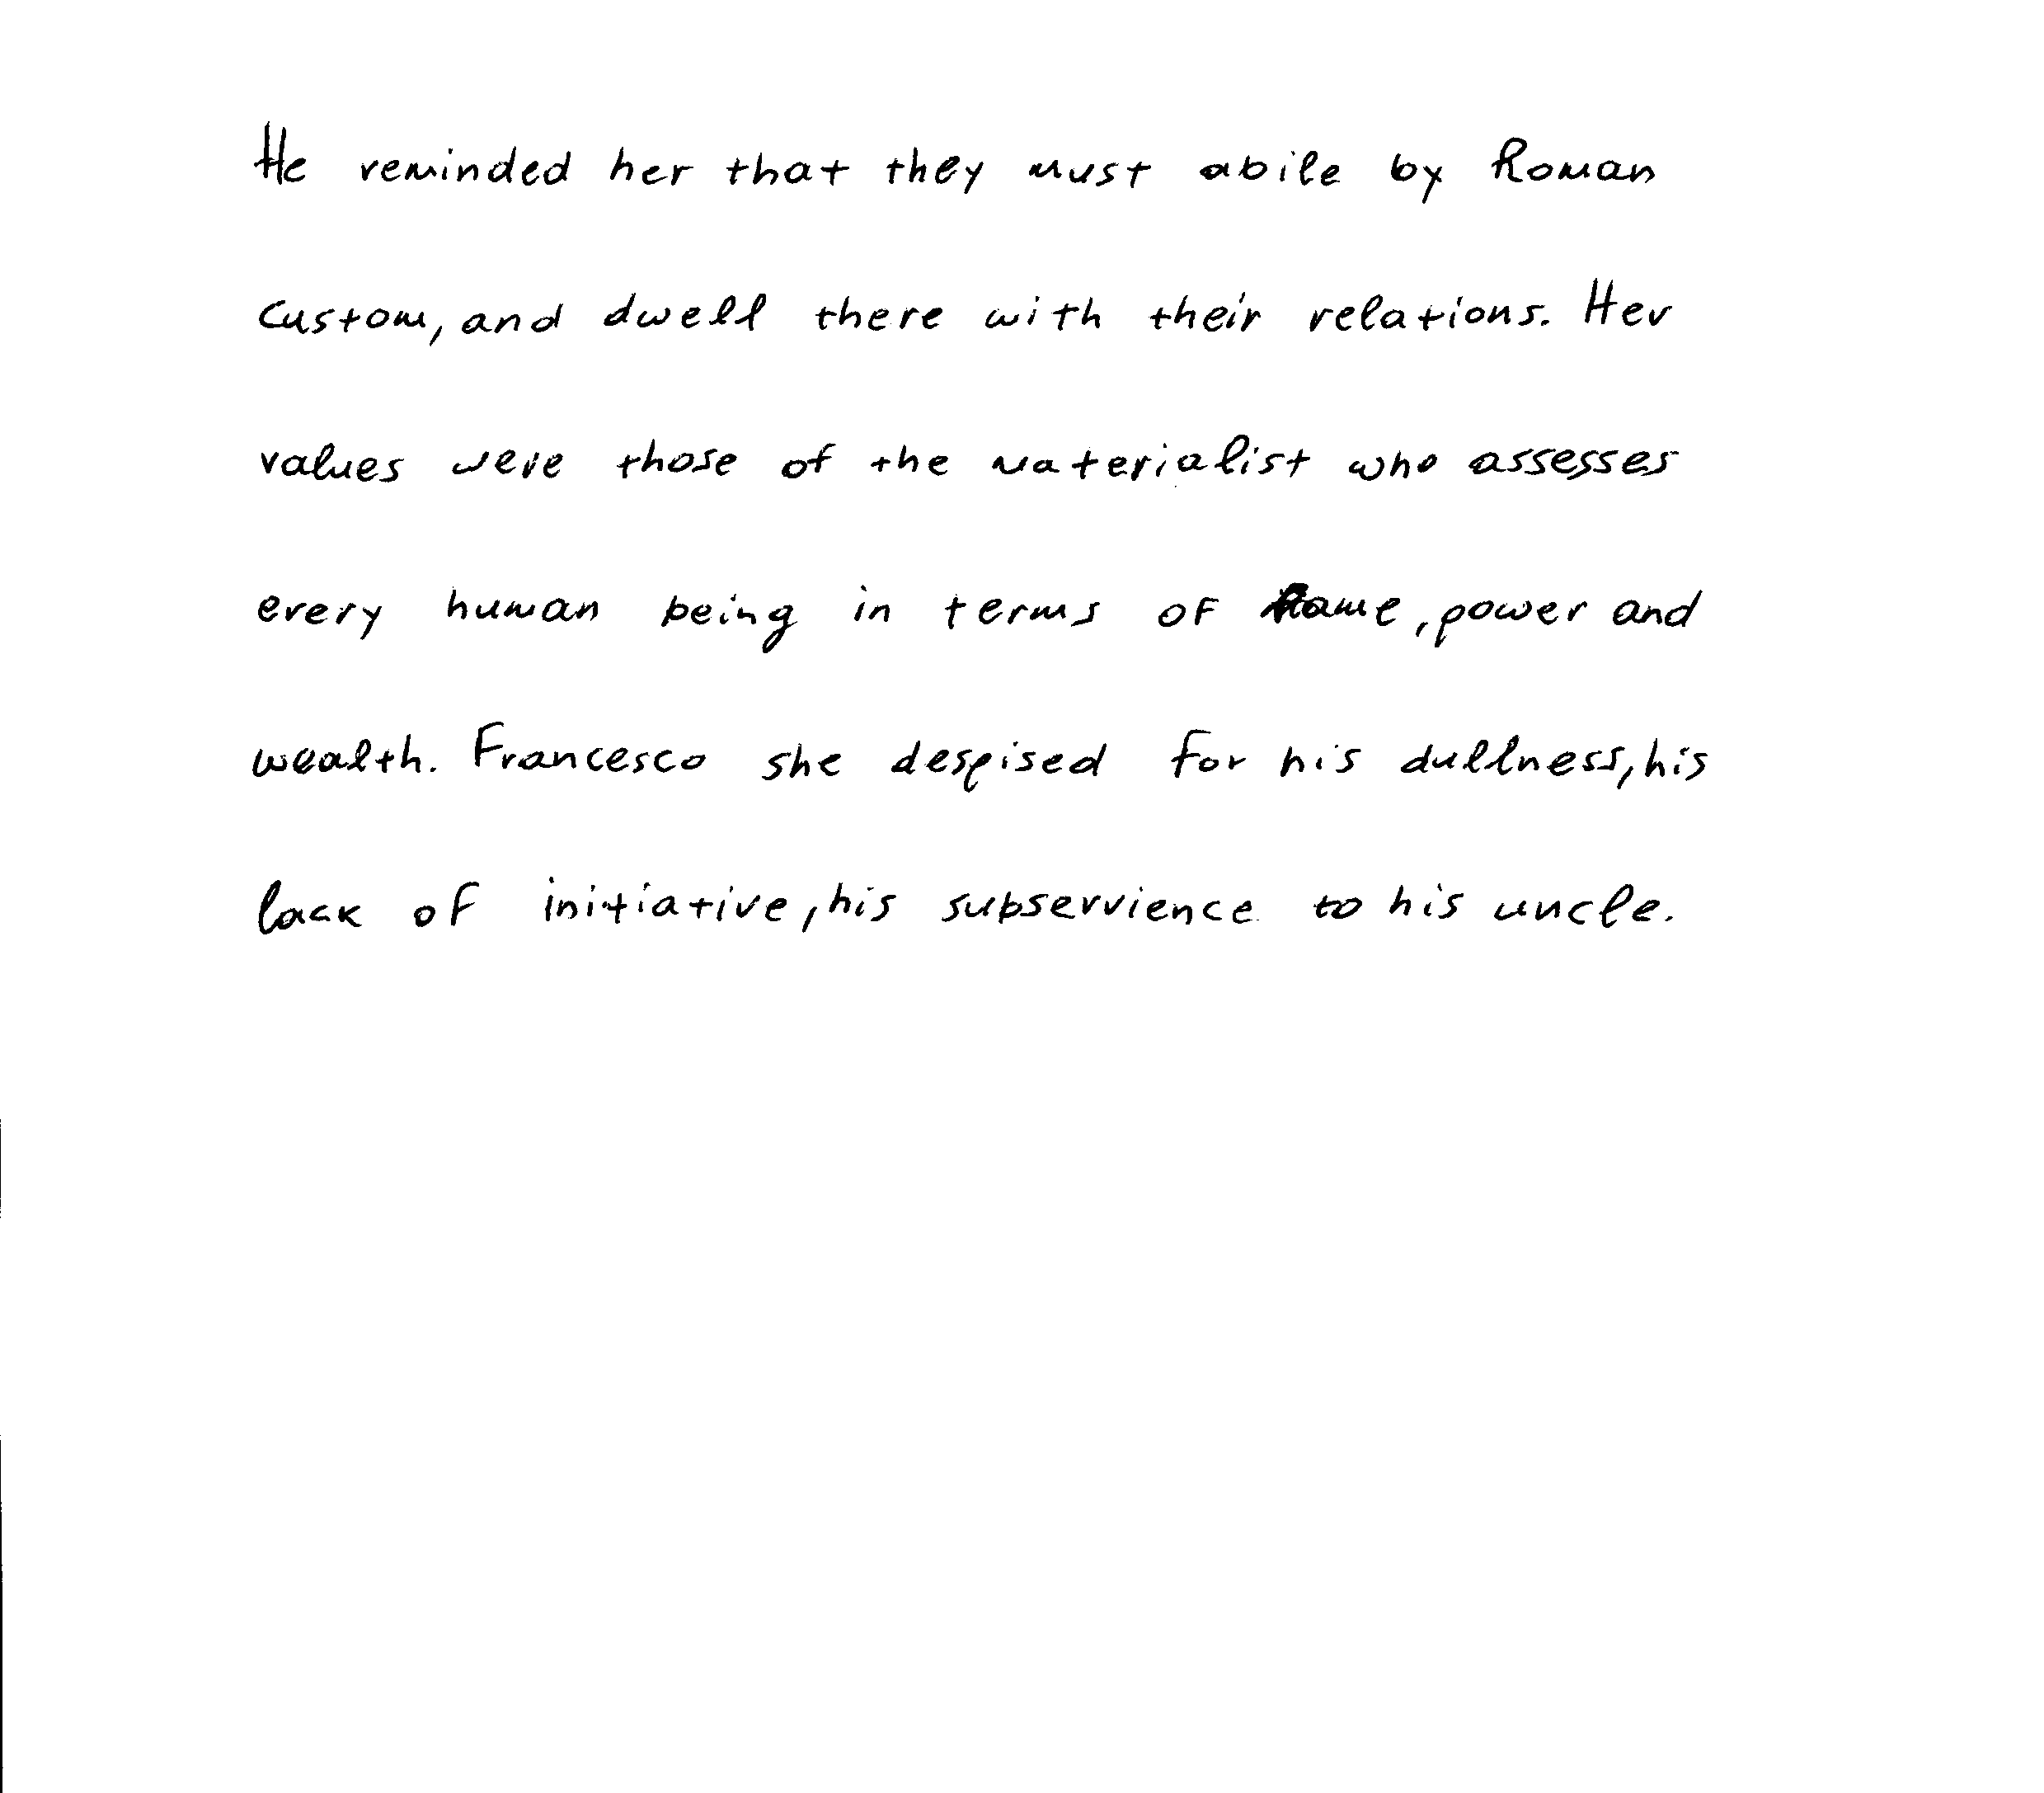 He reminded her that they must abile by Roman
custom, and dwell there with their relations. Her
values were those of the materialist who assesses
every human being in terms of name, power and
wealth. Francesco she despised for his dullness, his
lack of initiative, his subservience to his uncle.